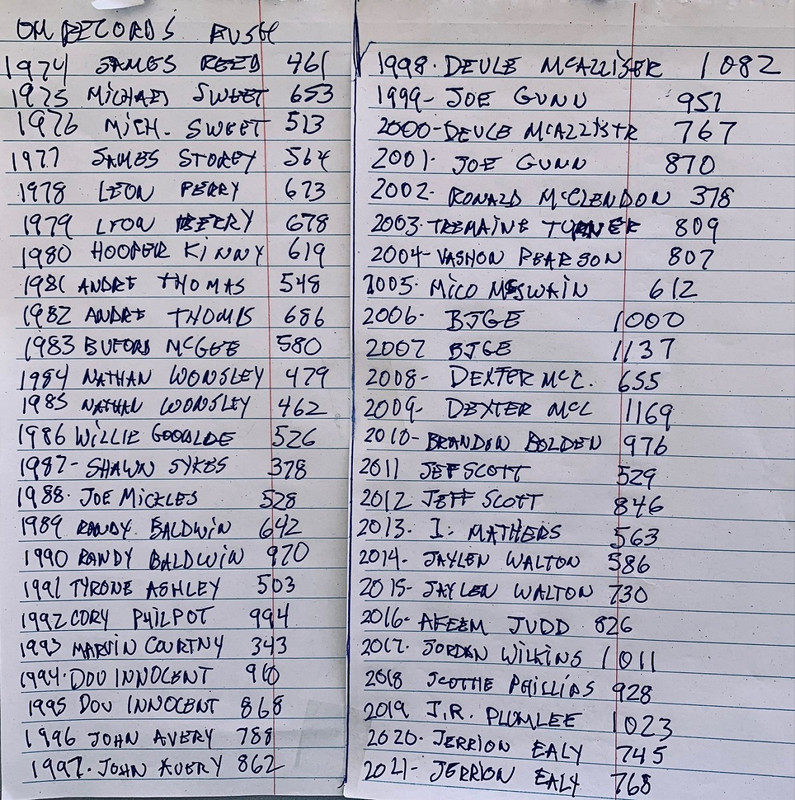 OM RECORDS RUSH
1974 JAMES REED 461
1975 MICHAEL SWEET 653
1976 MICH. SWEET 513
1977 JAMES STOREY 564
1978 LEON PERRY 673
1979 LEON PERRY 678
1980 HOOPER KINNY 619
1981 ANDRE THOMAS 548
1982 ANDRE THOMIS 686
1983 BUFORD MCGEE 580
1984 NATHAN WONSLEY 479
1985 NATHAN WONSLEY 462
1986 WILLIE GOODLOE 526
1987- SHAWN SYKES 378
1988. JOE MICKLES 528
1989 RANDY BALDWIN 642
1990 RANDY BALDWIN 970
1991 TYRONE ASHLEY 503
1992 CORY PHILPOT 994
1993 MARVIN COURTNY 343
1994. DOU INNOCENT 910
1995 DOU INNOCENT 868
1996 JOHN AVERY 788
1997. JOHN AVERY 862
1998. DEULE MCALLISTER 1082
1999- JOE GUNN 951
2000- DEULE MCALLISTR 767
2001. JOE GUNN 870
2002- RONALD MCCLENDON 378
2003. TREMAINE TURNER 809
2004- VASHON PEARSON 807
2005. MICO MCSWAIN 612
2006. BJGE 1000
2007 BJGE 1137
2008- DEXTER MCC. 655
2009- DEXTER MCC 1169
2010- BRANDON BOLDEN 976
2011 JEFF SCOTT 529
2012 JEFF SCOTT 846
2013. I. MATHERS 563
2014- JAYLEN WALTON 586
2015- JAYLEN WALTON 730
2016- AKEEM JUDD 826
2017. JORDAN WILKINS 1011
2018 SCOTTIE PHILLIPS 928
2019 J.R. PLUMLEE 1023
2020- JERRION EALY 745
2021- JERRION EALY 768